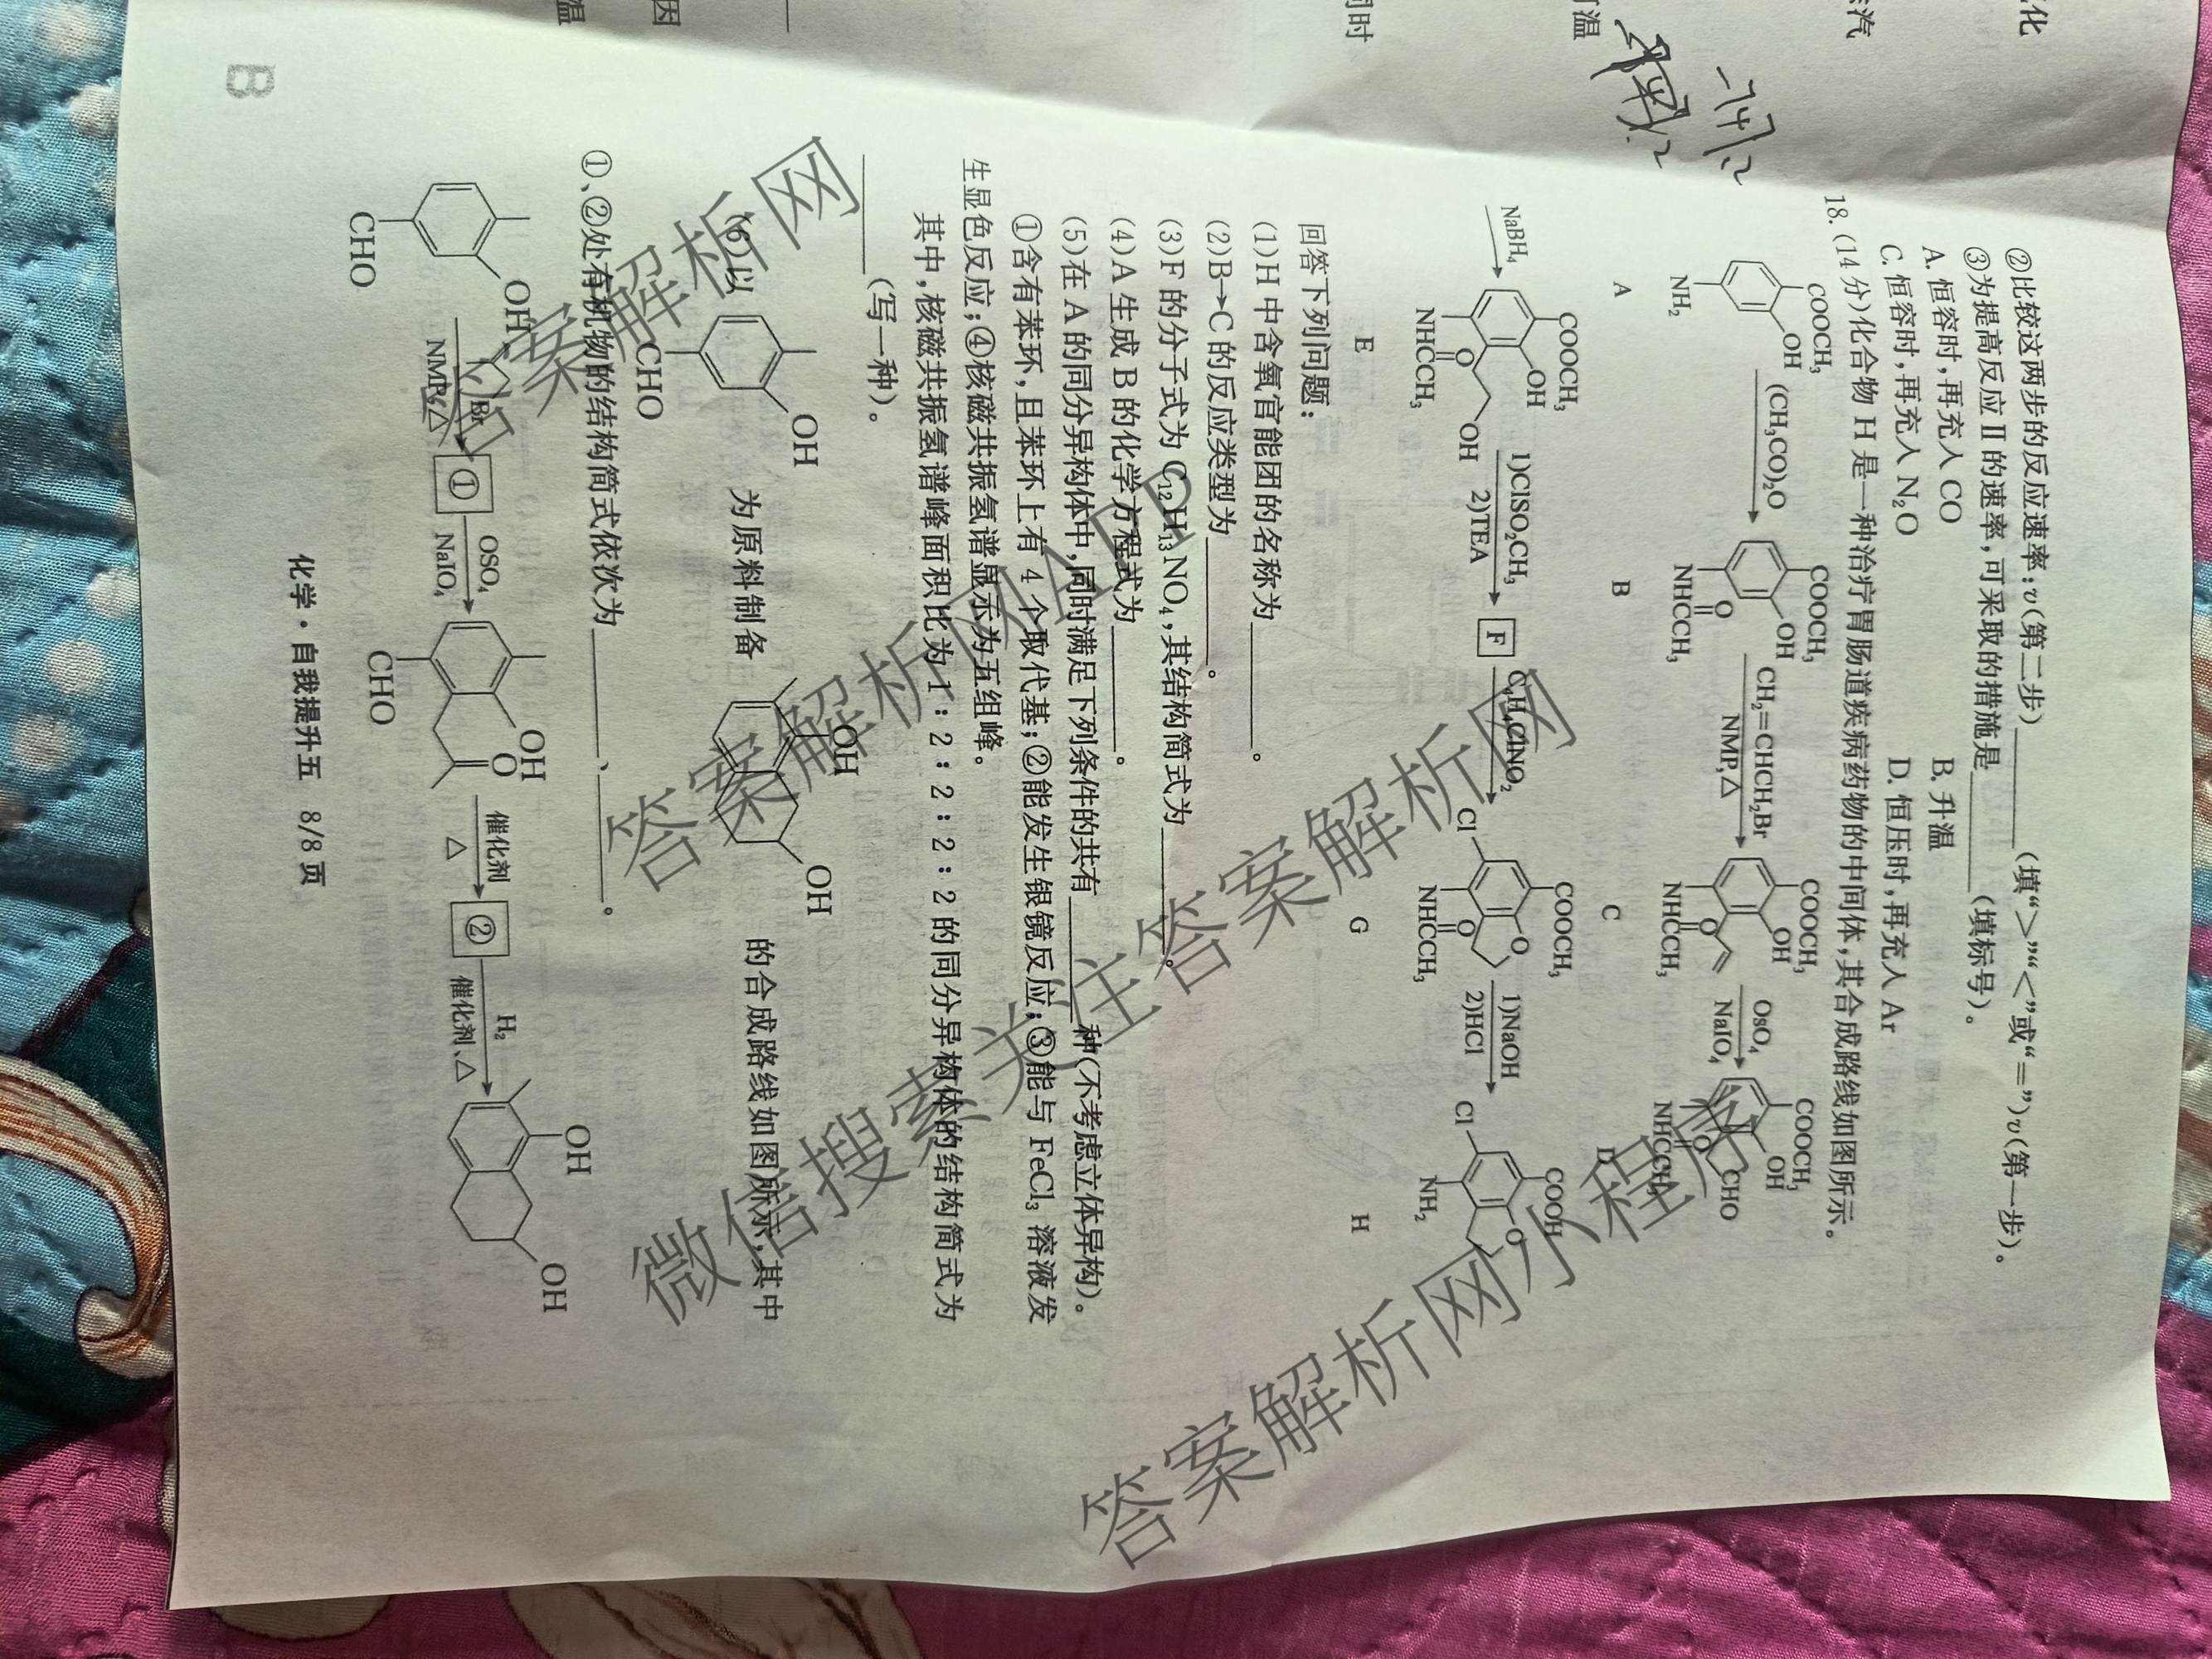 ②比较这两步的反应速率:v(第二步)______(填“>”“<”或“=”)v(第一步)。
③为提高反应Ⅱ的速率,可采取的措施是______(填标号)。
A.恒容时,再充入 CO
B.升温
C.恒容时,再充入 N₂O
D.恒压时,再充入 Ar
18.(14分)化合物 H 是一种治疗胃肠道疾病药物的中间体,其合成路线如图所示。
COOCH₃ OH NH₂
(CH₃CO)₂O
COOCH₃ OH O NHCCH₃
CH₂=CHCH₂Br
NMP,△
COOCH₃ OH O NHCCH₃
OsO₄
NaIO₄
COOCH₃ OH CHO O NHCCH₃
A B C D
NaBH₄
COOCH₃ OH OH O NHCCH₃
1)ClSO₂CH₃
2)TEA
F
C₄H₄ClNO₂
COOCH₃ O Cl O NHCCH₃
1)NaOH
2)HCl
COOH O Cl NH₂
E G H
回答下列问题:
(1)H 中含氧官能团的名称为______。
(2)B→C 的反应类型为______。
(3)F 的分子式为 C₁₂H₁₃NO₄,其结构简式为______。
(4)A 生成 B 的化学方程式为______。
(5)在 A 的同分异构体中,同时满足下列条件的共有______种(不考虑立体异构)。
①含有苯环,且苯环上有 4 个取代基;②能发生银镜反应;③能与 FeCl₃ 溶液发
生显色反应;④核磁共振氢谱显示为五组峰。
其中,核磁共振氢谱峰面积比为 1∶2∶2∶2∶2 的同分异构体的结构简式为
______(写一种)。
(6)以 OH CHO 为原料制备 OH OH 的合成路线如图所示,其中
①、②处有机物的结构简式依次为______、______。
OH CHO
Br
NMP,△
①
OSO₄
NaIO₄
OH O CHO
催化剂
△
②
H₂
催化剂、△
OH OH
化学·自我提升五 8/8页
B
微信搜索关注答案解析网
答案解析网小程序
答案解析网APP
答案解析网